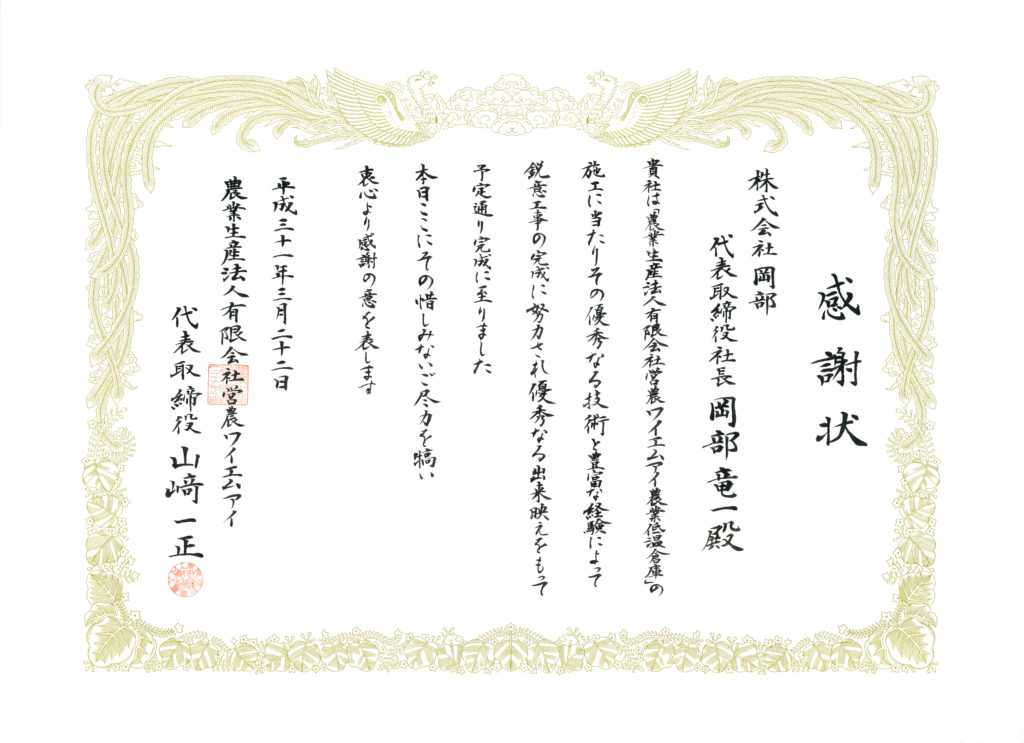 感謝状
株式会社 岡部
代表取締役社長 岡部 竜一 殿
貴社は「農業生産法人有限会社営農ワイエムアイ農業低温倉庫」の
施工に当たりその優秀なる技術と豊富な経験によって
鋭意工事の完成に努力され優秀なる出来映えをもって
予定通り完成に至りました
本日ここにその惜しみないご尽力を犒い
衷心より感謝の意を表します
平成三十一年三月二十二日
農業生産法人有限会社営農ワイエムアイ
代表取締役 山﨑 一正